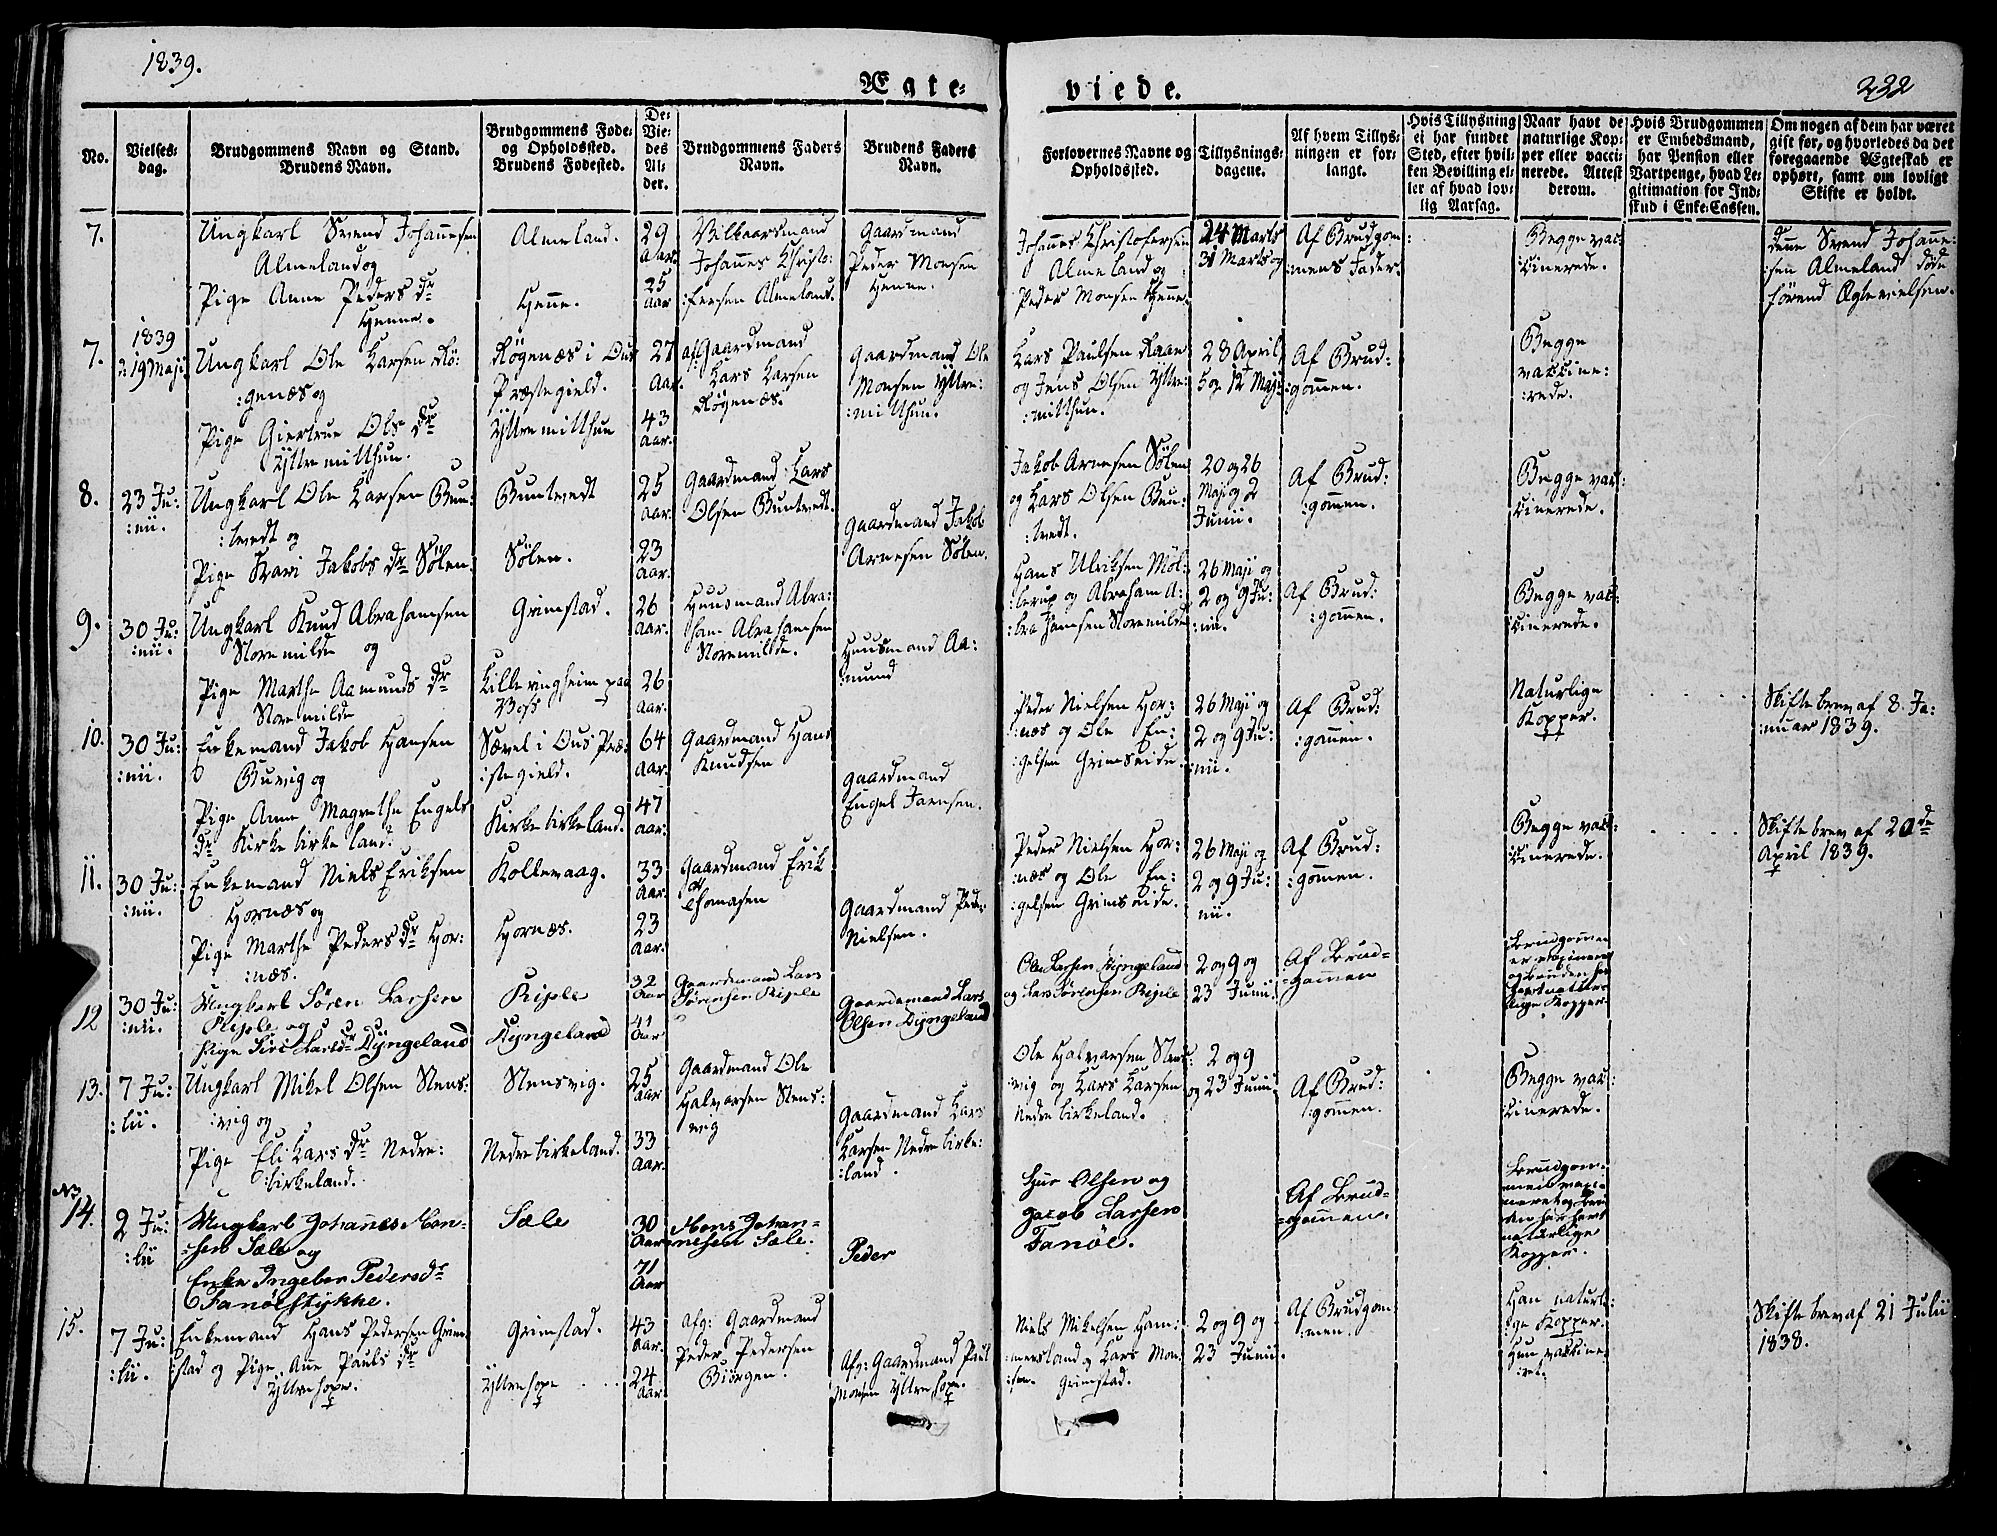 1839.
Ægte-
viede.
232
No.
Vielses-
dag.
Brudgommens Navn og Stand.
Brudens Navn.
Brudgommens Føde-
og Opholdssted.
Brudens Fødested.
De
Vie-
des
Al-
der.
Brudgommens Faders
Navn.
Brudens Faders
Navn.
Forlovernes Navne og
Opholdssted.
Tillysnings-
dagene.
Af hvem Tillys-
ningen er for-
langt.
Hvis Tillysning
ei har fundet
Sted, efter hvil-
ken Bevilling el-
ler af hvad lov-
lig Aarsag.
Naar havt de
naturlige Kop-
per eller vacci-
nerede. Attest
derom.
Hvis Brudgommen
er Embedsmand,
har Pension eller
Vartpenge, hvad Le-
gitimation for Ind-
skud i Enke-Cassen.
Om nogen af dem har været
gift før, og hvorledes da det
foregaaende Ægteskab er
ophørt, samt om lovligt
Skifte er holdt.
7.
Ungkarl Svend Johannesen
Almeland og
Pige Anne Peders dr
Henne.
Almeland.
Henne.
29
Aar.
25
Aar
Vilkaarsmand
Johannes Christo:
:fersen Almeland.
Gaardmand
Peder Monsen
Henne.
Johannes Christofersen
Almeland og
Peder Monsen Henne.
24 Marts
31 Marts og
Af Brudgom
:mens Fader.
Begge vac:
:cinerede.
denne Svend Johanne:
:sen Almeland døde
førend Ægtevielsen.
7.
1839
d: 19 Maji
Ungkarl Ole Larsen Rø:
:genæs og
Pige Giertrue Ols dr
Yttre mitthun.
Røgenæs i Ous
Præstegield.
Yttre mitthun
27
Aar.
43
Aar.
af: Gaardmand
Lars Larsen
Røgenæs.
Gaardmand Ole
Monsen Yttre:
:mitthun.
Lars Paulsen Raan
og Jens Olsen Yttre:
:mitthun.
28 April
5 og 12 Maji
Af Brud:
:gommen.
Begge
vakcine:
:rede.
8.
23 Ju:
:nii.
Ungkarl Ole Larsen Bun:
:tvedt og
Pige Kari Jakobs dr Sølen.
Buntvedt
Sølen.
25
Aar.
23
Aar.
Gaardmand Lars
Olsen Buntvedt.
Gaardmand Jakob
Arnesen Sølen.
Jakob Arnesen Sølen
og Lars Olsen Bun:
:tvedt.
20 og 26
Maji og 2
Junii.
Af Brud:
:gommen.
Begge vac:
:cinerede.
9.
30 Ju:
:nii.
Ungkarl Knud Abrahamsen
Storemilde og
Pige Marthe Aamunds dr
Storemilde
Grimstad.
Lilleringheim paa
Voss
26
Aar.
26
Aar.
Huusmand Abra:
ham Abrahamsen
Storemilde.
Huusmand Aa:
:mund
Hans Ulriksen Møl:
:lerup og Abraham A:
:brahamsen Storemilde
26 Maji og
2 og 9 Ju:
:nii.
Af Brud:
:gommen.
Begge vac:
:cinerede.
10.
30 Ju:
:nii.
Enkemand Jakob Hansen
Buvig og
Pige Anne Magrethe Engels
dr Kirkebirkeland.
Sævel i Ous Præ:
:stegield.
Kirkebirkeland.
64
Aar.
47
Aar.
Gaardmand Hans
Knudsen
Gaardmand
Engel Jansen.
Peder Nielsen Hor:
:næs og Ole En:
:gelsen Grimseide.
26 Maji og
2 og 9 Ju:
:nii.
Af Brud:
:gommen.
Naturlige
Kopper.
Skiftebrev af 8 Ja:
:nuar 1839.
11.
30 Ju:
:nii.
Enkemand Niels Eriksen
Hornæs og
Pige Marthe Peders dr Hor:
:næs.
Kollevaag.
Hornæs.
33
Aar.
23
Aar.
Gaardmand Erik
Thomasen
Gaardmand Peder
Nielsen.
Peder Nielsen Hor:
:næs og Ole En:
:gelsen Grimseide.
26 Maji og
2 og 9 Ju:
nii.
Af Brud:
:gommen.
Begge vac:
:cinerede.
Skiftebrev af 20de
April 1839.
12
30 Ju:
:nii.
Ungkarl Søren Larsen
Riple og
Pige Siri Larsdr Dyngeland
Riple
Dyngeland
32
Aar
41
Aar
Gaardmand Lars
Sørensen Riple
Gaardmand Lars
Olsen Dyngeland
Ole Larsen Dyngeland
og Lars Sørensen Riple
2 og 9 og
23 Junii
Af Brud=
=gommen
Brudgommen
er vaccineret
og Bruden har
havt naturl:
lige Kopper
13.
7 Ju:
:lii.
Ungkarl Mikel Olsen Stens:
:vig og
Pige Eli Lars dr Nedre:
:birkeland.
Stensvig.
Nedrebirkeland.
25
Aar
33
Aar.
Gaardmand Ole
Halvarsen Stens:
vig
Gaardmand Lars
Larsen Nedrebirke:
:land.
Ole Halvarsen Stens:
:vig og Lars Larsen
Nedrebirkeland.
2 og 9
og 23 Junii
Af Brud:
:gommen.
Begge vac:
:cinerede.
No
14.
2 Ju:
:lii
Ungkarl Johannes Mon=
=sen Sæle og
Enke Ingebor Pedersdr
Fanølstykke.
Sæle
30
Aar
71
Aar
Mons Johan=
nesen Sæle.
Peder
Siur Olsen og
Jacob Larsen
Fanøl.
Af Brud=
=gommen.
Brudgom=
men vacci=
neret og Bru
den har havt
naturlige
Kopper.
15.
7 Ju:
:lii.
Enkemand Hans Pedersen Grim
:stad og Pige Ane Pauls dr
Yttrehope.
Grimstad.
Yttrehope
43
Aar.
24
Aar.
Afg: Gaardmand
Peder Pedersen
Biørgen.
Afg: Gaardmand Paul
Monsen Yttrehope.
Niels Mikelsen Ham:
:mersland og Lars Mon:
:sen Grimstad.
2 og 9 og
23 Junii.
Af Brudgom
:men.
Han naturl:
:ige Kopper.
Hun vakcine
:ret.
Skiftebrev af 21 Julii
1838.